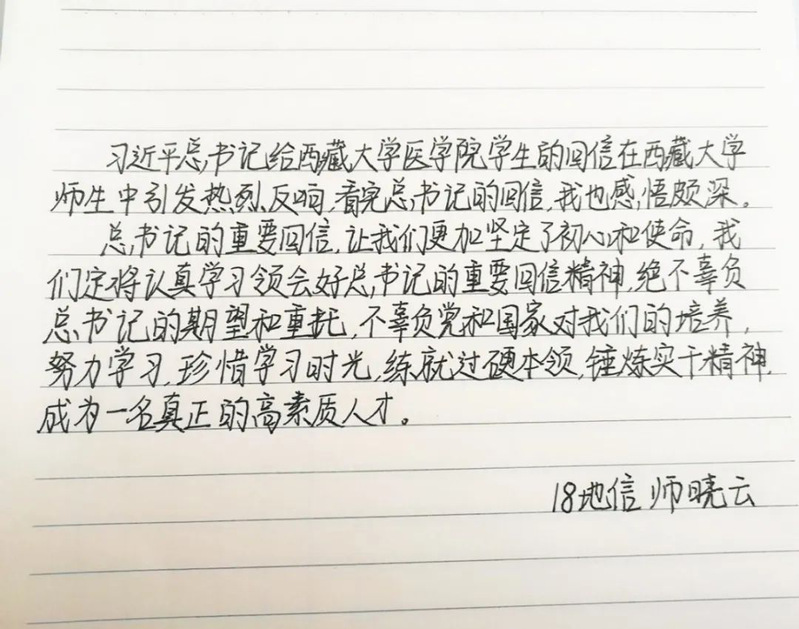 习近平总书记给西藏大学医学院学生的回信在西藏大学
师生中引发热烈反响,看完总书记的回信,我也感悟颇深。
总书记的重要回信,让我们更加坚定了初心和使命,我
们定将认真学习领会好总书记的重要回信精神,绝不辜负
总书记的期望和重托,不辜负党和国家对我们的培养,
努力学习,珍惜学习时光,练就过硬本领,锤炼实干精神,
成为一名真正的高素质人才。
18地信 师晓云